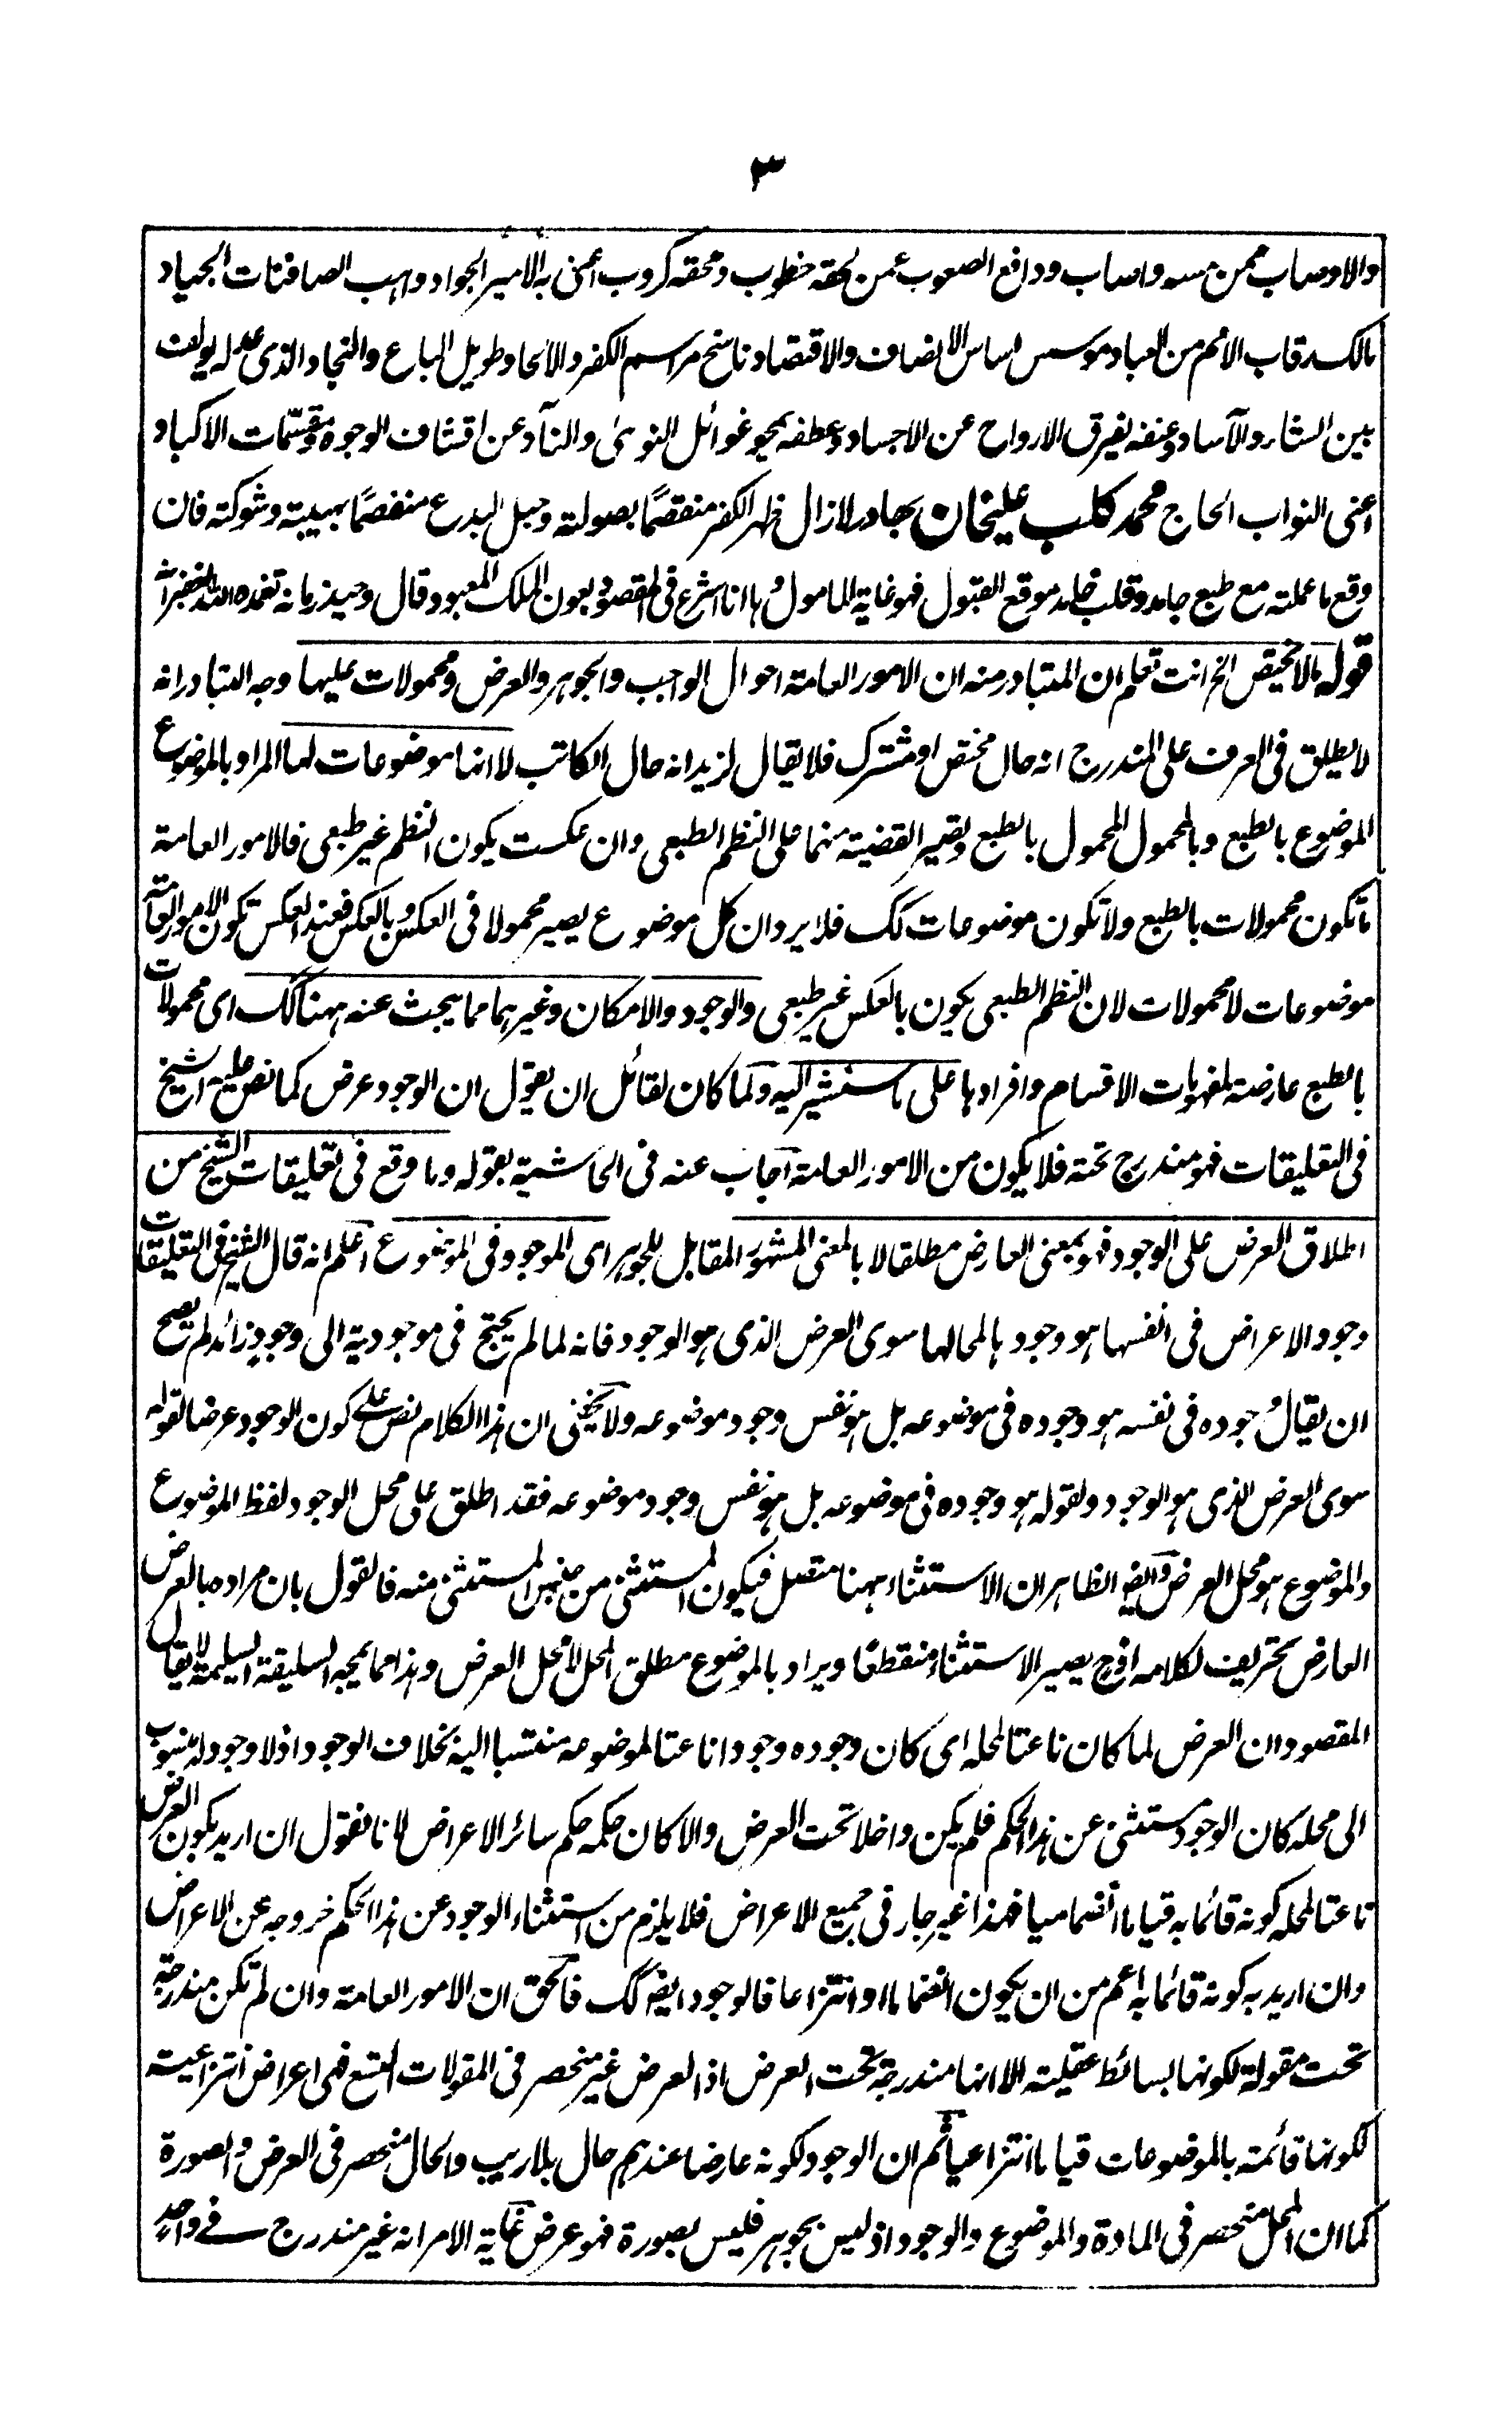 ٣
والاوصاب ممن مسه واصاب ودافع الصعوب عمن لحقه خطوب ومحقه كروب اعنى به الامير الجواد واهب الصافنات الجياد
مالك رقاب الامم من العباد موسس اساس الانصاف والاقتصاد ناسخ مراسم الكفر والالحاد طويل الباع والنجاد الذى عدله يولف
بين الشاء والآساد وعنفه يفرق الارواح عن الاجساد وعطفه يمحو غوائل النوى والنآد عن اقتناف الوجوه ومقسمات الاكباد
اعنى النواب الحاج محمد كلب عليخان بهادر لازال ظهر الكفر منقصمًا بصولته وحبل البدع منفصمًا بهيبته وشوكته فان
وقع ما عملته مع طبع جامد وقلب خامد موقع القبول فهو غاية المامول وها انا اشرع فى المقصود بعون الملك المعبود قال وحيد زمانه تغمده الله بالغفران
قوله مالا يختص الخ انت تعلم ان المتبادر منه ان الامور العامة احوال الواجب والجوهر والعرض ومحمولات عليها وجه التبادر انه
لا يطلق فى العرف على المندرج انه حال مختص او مشترك فلا يقال لزيد انه حال الكاتب لا انها موضوعات لها المراد بالموضوع
الموضوع بالطبع وبالمحمول المحمول بالطبع وتصير القضية منهما على النظم الطبعى وان عكست يكون النظم غير طبعى فالامور العامة
ما تكون محمولات بالطبع ولا تكون موضوعات كك فلا يرد ان كل موضوع يصير محمولا فى العكس وبالعكس فعند العكس تكون الامور العامة
موضوعات لا محمولات لان النظم الطبعى يكون بالعكس غير طبعى والوجود والامكان وغيرهما مما يبحث عنه ههنا كك اى محمولات
بالطبع عارضة لمفهومات الاقسام وافرادها على ما سنشير اليه ولما كان لقائل ان يقول ان الوجود عرض كما نص عليه الشيخ
فى التعليقات فهو مندرج تحته فلا يكون من الامور العامة اجاب عنه فى الحاشية بقوله وما وقع فى تعليقات الشيخ من
اطلاق العرض على الوجود فهو بمعنى العارض مطلقا لا بالمعنى المشهور المقابل للجوهر اى الموجود فى الموضوع اعلم انه قال الشيخ فى التعليقات
وجود الاعراض فى انفسها هو وجودها لمحالها سوى العرض الذى هو الوجود فانه لما لم يحتج فى موجوديته الى وجود زائد لم يصح
ان يقال وجوده فى نفسه هو وجوده فى موضوعه بل هو نفس وجود موضوعه ولا يخفى ان هذا الكلام نص على كون الوجود عرضا لقوله
سوى العرض الذى هو الوجود ولقوله هو وجوده فى موضوعه بل هو نفس وجود موضوعه فقد اطلق على محل الوجود لفظ الموضوع
والموضوع هو محل العرض وايضا الظاهر ان الاستثناء ههنا متصل فيكون المستثنى من جنس المستثنى منه فالقول بان مراده بالعرض
العارض تحريف لكلامه اذ ح يصير الاستثناء منقطعًا ويراد بالموضوع مطلق المحل لا محل العرض وهذا مما يمجه السليقة السليمة لا يقال
المقصود ان العرض لما كان ناعتا لمحله اى كان وجوده وجودا ناعتا لموضوعه منتسبا اليه بخلاف الوجود اذ لا وجود له منسوب
الى محله كان الوجود مستثنى عن هذا الحكم فلم يكن داخلا تحت العرض والا كان حكمه حكم سائر الاعراض لانا نقول ان اريد بكون العرض
ناعتا لمحله كونه قائما به قياما انضماميا فهذا غير جار فى جميع الاعراض فلا يلزم من استثناء الوجود عن هذا الحكم خروجه عن الاعراض
وان اريد به كونه قائما به اعم من ان يكون انضماما او انتزاعا فالوجود ايضا كك فالحق ان الامور العامة وان لم تكن مندرجة
تحت مقولة لكونها بسائط عقلية الا انها مندرجة تحت العرض اذ العرض غير منحصر فى المقولات التسع فهى اعراض انتزاعية
لكونها قائمة بالموضوعات قياما انتزاعيا ثم ان الوجود لكونه عارضا عندهم حال بلا ريب والحال منحصر فى العرض والصورة
كما ان المحل منحصر فى المادة والموضوع والوجود اذ ليس بجوهر فليس بصورة فهو عرض غاية الامر انه غير مندرج فى واحد